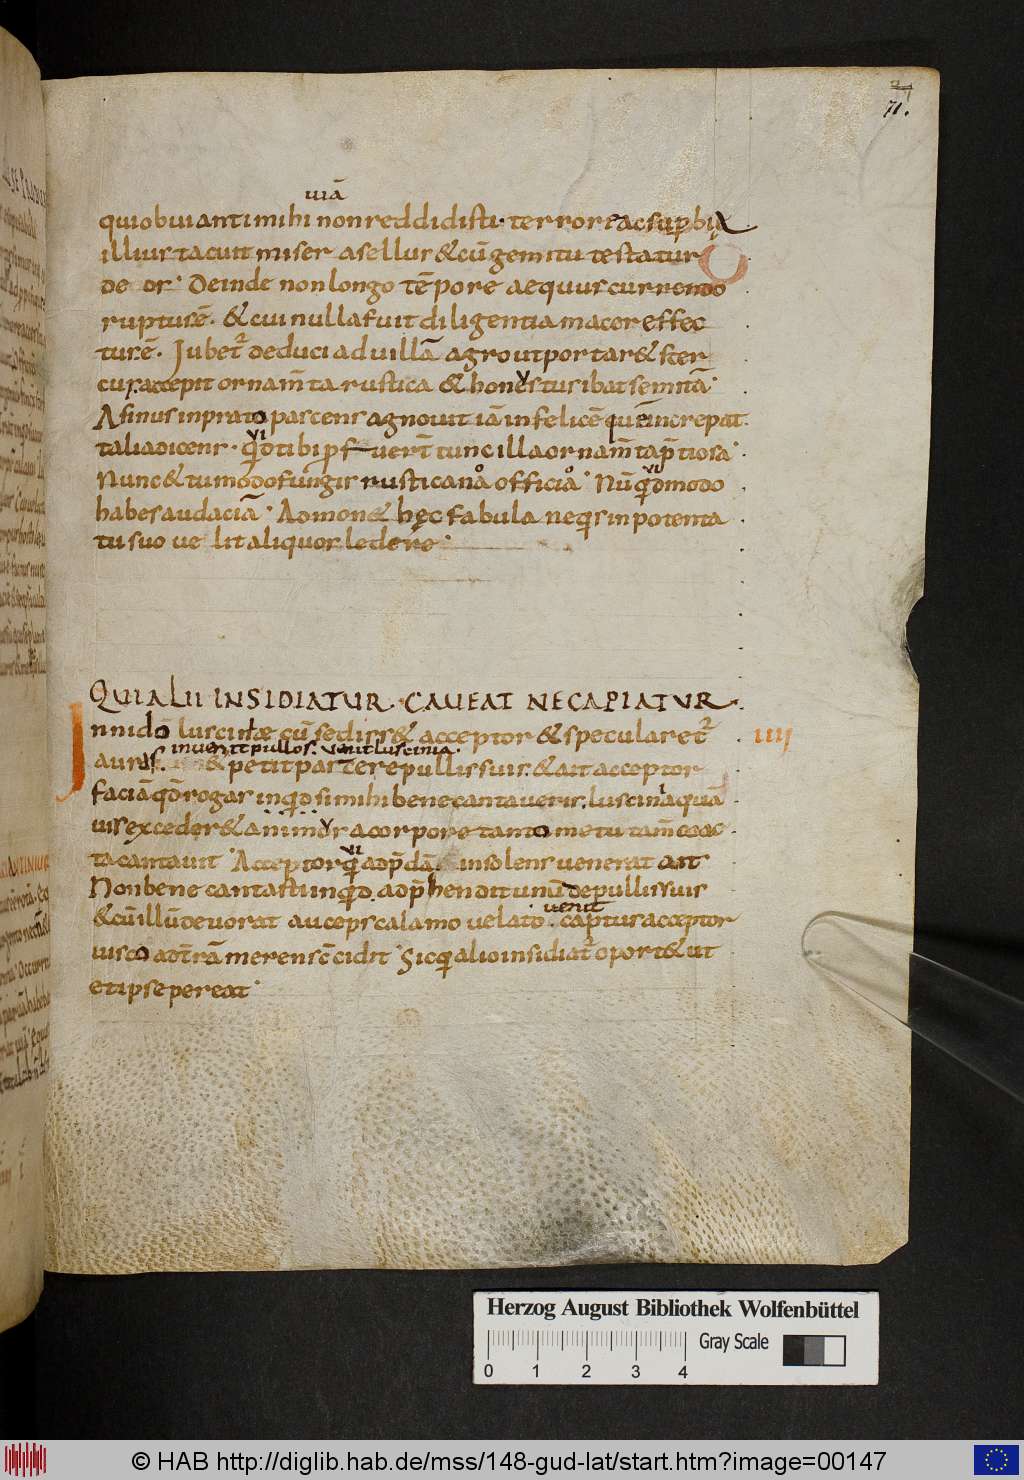 71.
uiā
qui obuianti mihi non reddidisti· terrore ac sup̄bia
illius tacuit miser asellus & cū gemitu testatur
deos· Deinde non longo tēpore aequus currendo
ruptusē· & cui nulla fuit diligentia macor effec
tusē· Jubet̄ deduci ad uillā agro ut portar& ster
cus· accepit ornam̄ta rustica & honestus ibat semitā·
Asinus in prato pascens agnouit iā infelicē quē increpat
talia dicens· qd̄ tibi pfuer̄t tunc illa ornam̄ta p̄tiosa·
Nunc & tu modo fungis rusticana officia· Nūqd modo
habes audaciā· Admon& hęc fabula neqs in potenta
tu suo uelit aliquos ledere·
QUI ALII INSIDIATUR· CAUEAT NE CAPIATUR·
In nido lusciniae cū sediss& acceptor & specularet̄
IIII
inuenit pullos· uenit luscinia·
auras· & petit parcere pullis suis· & ait acceptor
faciā qd̄ rogas inqd si mihi bene cantaueris· luscinia quā
uis exceder& animus a corpore tanto metu tam̄ coac
ta cantauit· Acceptor qui ad p̄dā insolens uenerat ait
Non bene cantasti inqd· adp̄hendit unū de pullis suis
& cū illū deuorat auceps calamo uelato
uenit
· captus acceptor
uisco ad t̄rā merens c̄cidit· Sic qui alio insidiat̄ oport& ut
et ipse pereat·
Herzog August Bibliothek Wolfenbüttel
Gray Scale
0 1 2 3 4
© HAB http://diglib.hab.de/mss/148-gud-lat/start.htm?image=00147